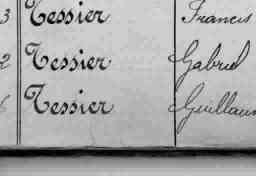 3 Tessier Francis
2 Tessier Gabriel
6 Tessier